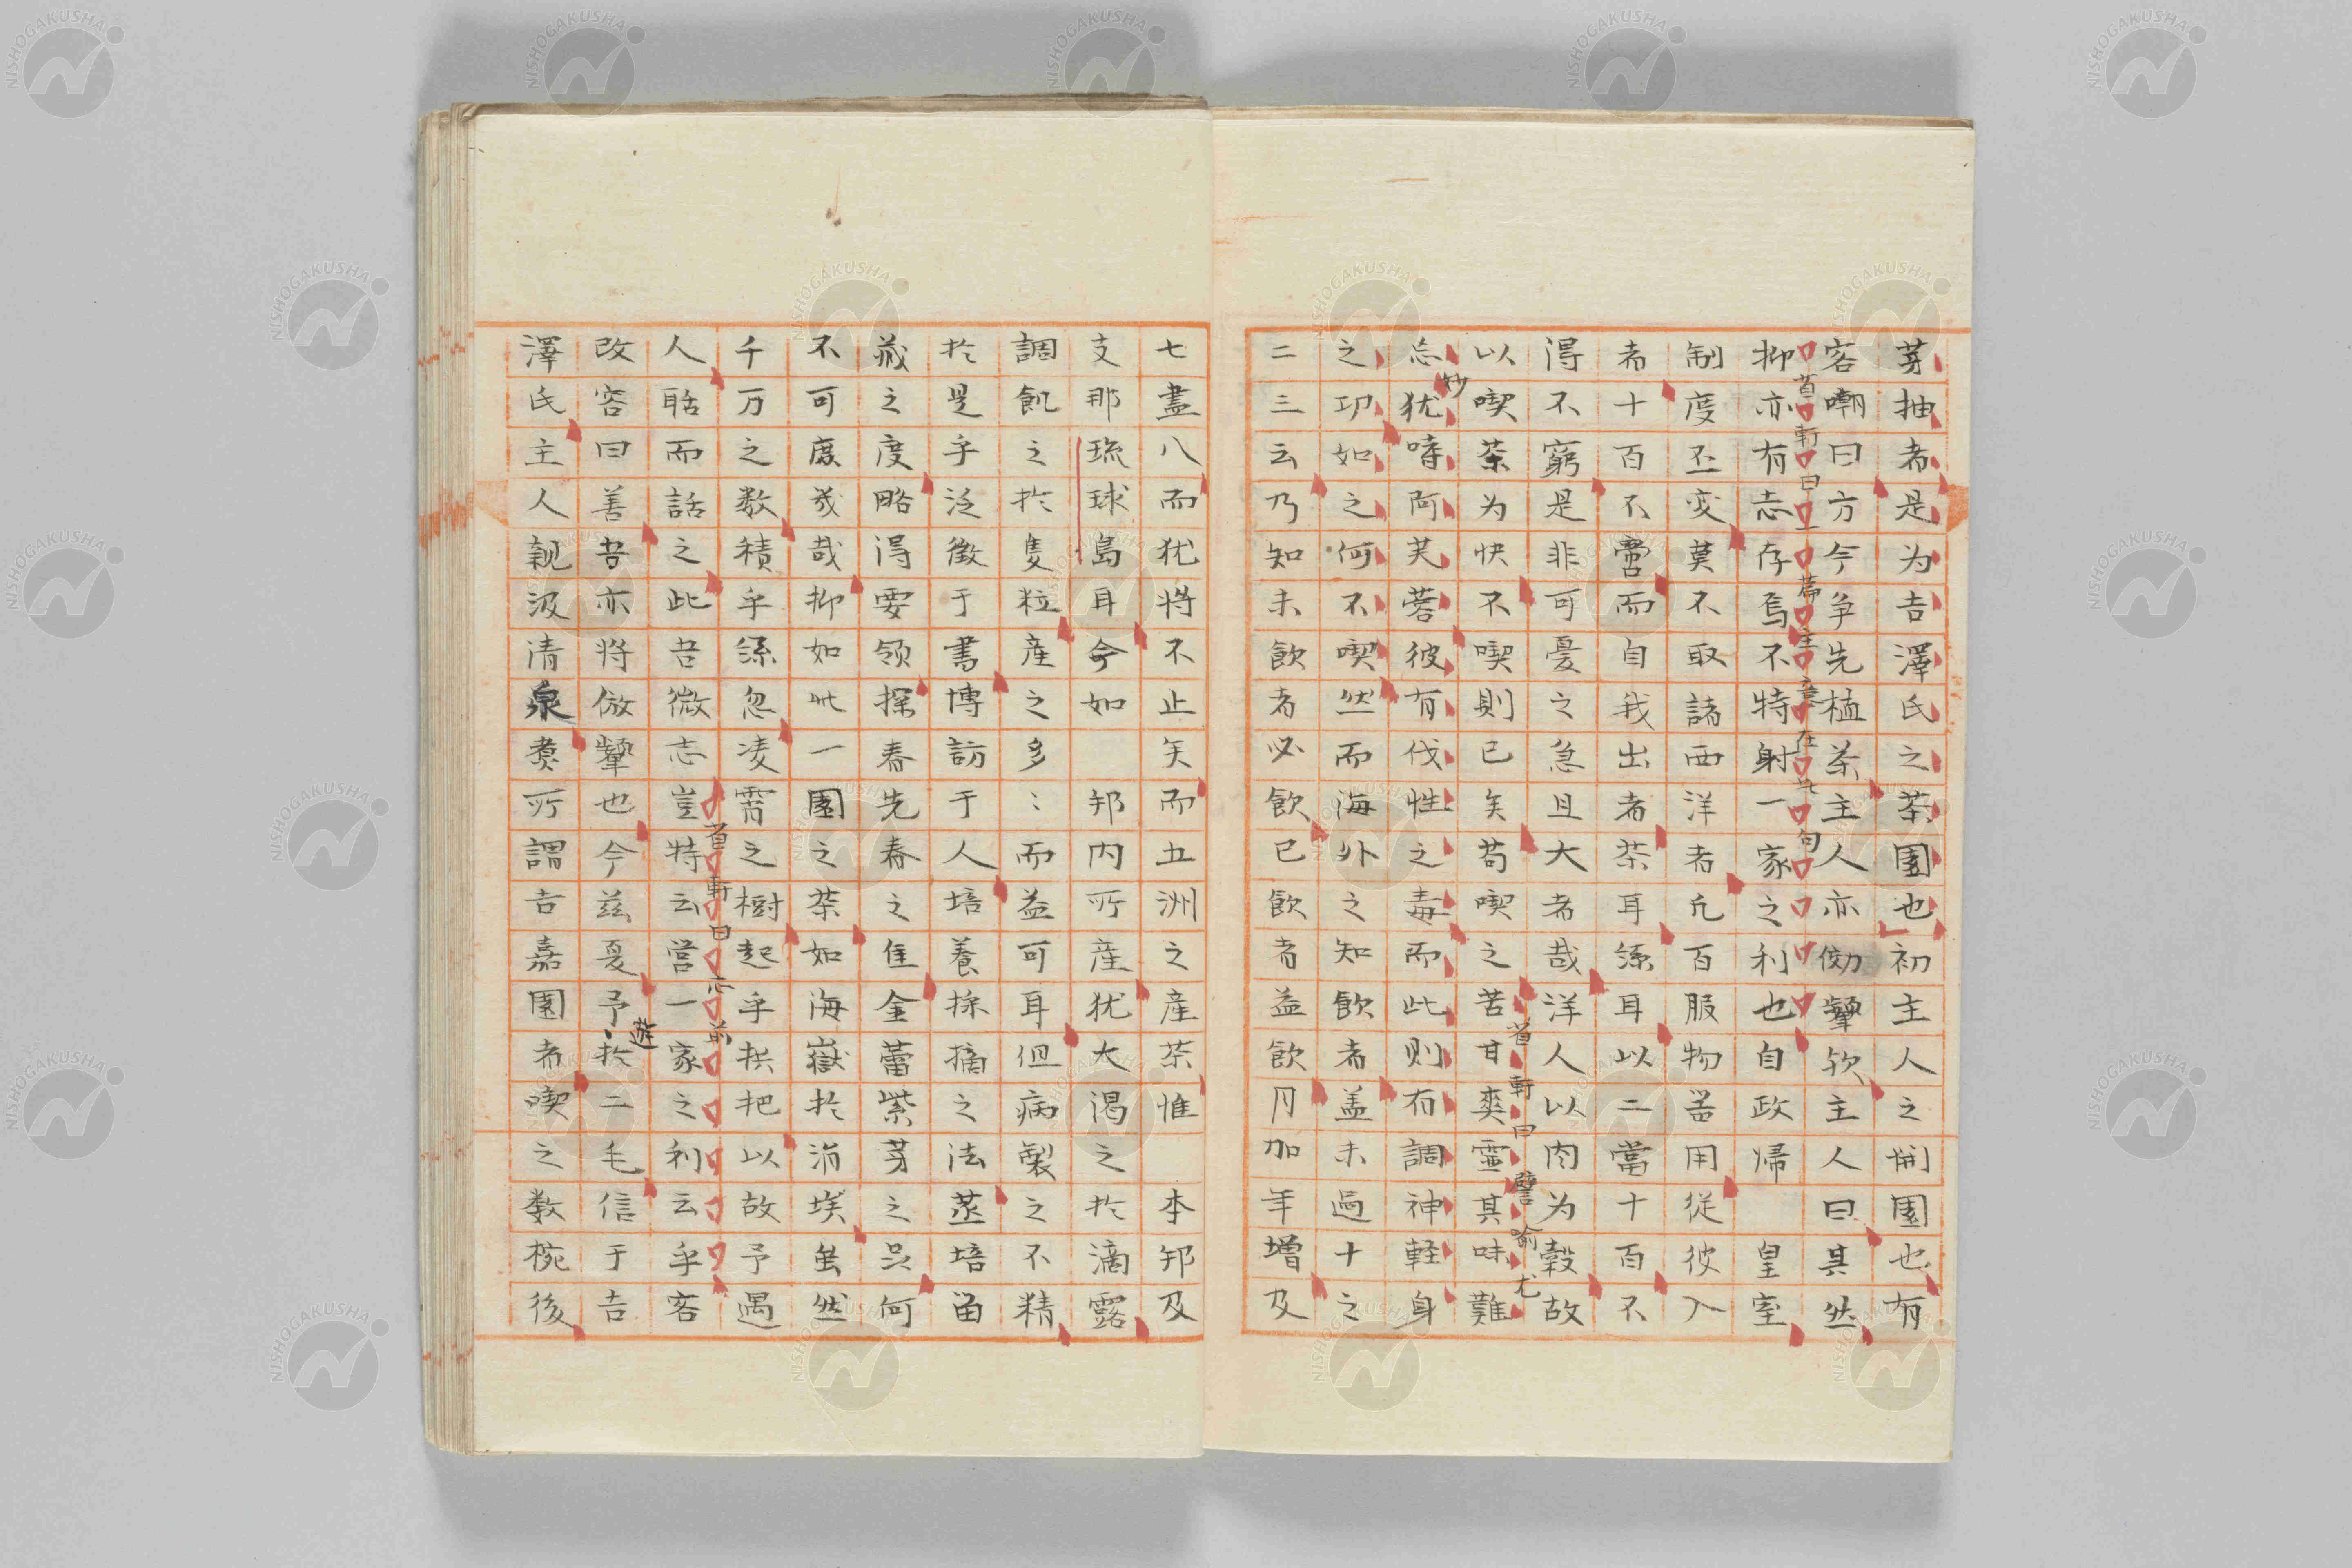 芽抽者是为吉澤氏之茶園也初主人之開園也有
客嘲曰方今争先植茶主人亦傚顰欤主人曰其然
省軒曰一篇主意在此句
抑亦有志存焉不特射一家之利也自政帰皇室
制度丕変莫不取諸西洋者凢百服物噐用從彼入
者十百不啻而自我出者茶耳絲耳以二當十百不
得不窮是非可憂之急且大者哉洋人以肉为穀故
省軒曰譬喻尤妙
以喫茶为快不喫則已矣苟喫之苦甘爽靈其味難
忘犹嗜阿芙蓉彼有伐性之毒而此则有調神軽身
之功如之何不喫然而海外之知飲者盖未過十之
二三云乃知未飲者必飲已飲者益飲月加年增及
七盡八而犹将不止矣而五洲之産茶惟本邦及
支那琉球島耳今如邦内所産犹大渴之於滴露
調飢之於隻粒産之多〻而益可耳但病製之不精
於是乎泛徴于書博訪于人培養採摘之法蒸培畨
藏之度略得要領探春先春之隹金蕾紫芽之品何
不可廢㦲哉抑如此一園之茶如海嶽於涓埃虽然
千万之数積乎絲忽凌霄之樹起乎拱把以故予遇
人聒而話之此吾微志豈特云営一家之利云乎客
省軒曰应前
改容曰善吾亦将倣顰也今兹夏予遊於二毛信于吉
澤氏主人親汲清泉煑所謂吉嘉園者喫之数椀後